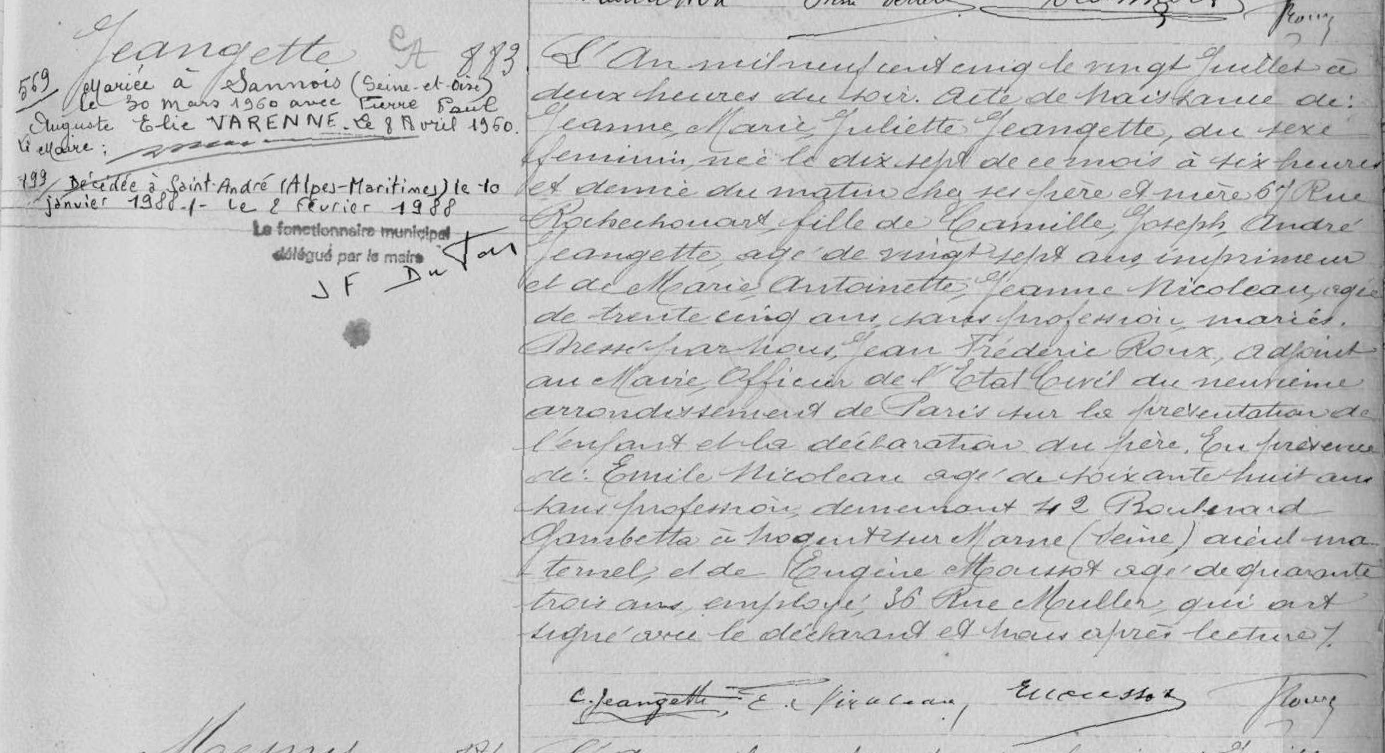 Jeangette
883
569
Mariée à Sannois (Seine-et-Oise)
le 30 mars 1960 avec Pierre Paul
Auguste Elie VARENNE. Le 8 Avril 1960.
Le Maire :
199 Décédée à Saint-André (Alpes-Maritimes) le 10
janvier 1988 -/- Le 2 Février 1988
Le fonctionnaire municipal
délégué par le maire
J F
L'An mil neuf cent cinq le vingt Juillet à
deux heures du soir. Acte de Naissance de :
Jeanne, Marie, Juliette Jeangette, du sexe
feminin née le dix sept de ce mois à six heures
et demie du matin chez ses père et mère 67 Rue
Rochechouart, fille de Camille, Joseph, André
Jeangette, agé de vingt sept ans, imprimeur
et de Marie, Antoinette, Jeanne Nicoleau, agée
de trente cinq ans, sans profession, mariés.
Dressé par Nous, Jean Frédéric Roux, adjoint
au Maire, Officier de l'Etat Civil du neuvième
arrondissement de Paris sur la présentation de
l'enfant et la déclaration du père. En présence
de : Emile Nicoleau agé de soixante huit ans
sans profession, demeurant 42 Boulevard
Gambetta à Nogent sur Marne (Seine) aieul ma-
ternel, et de Eugène Moussot agé de quarante
trois ans, employé, 36 Rue Muller, qui ont
signé avec le déclarant et Nous après lecture /.
C. Jeangette E. Nicoleau, E Moussot Roux